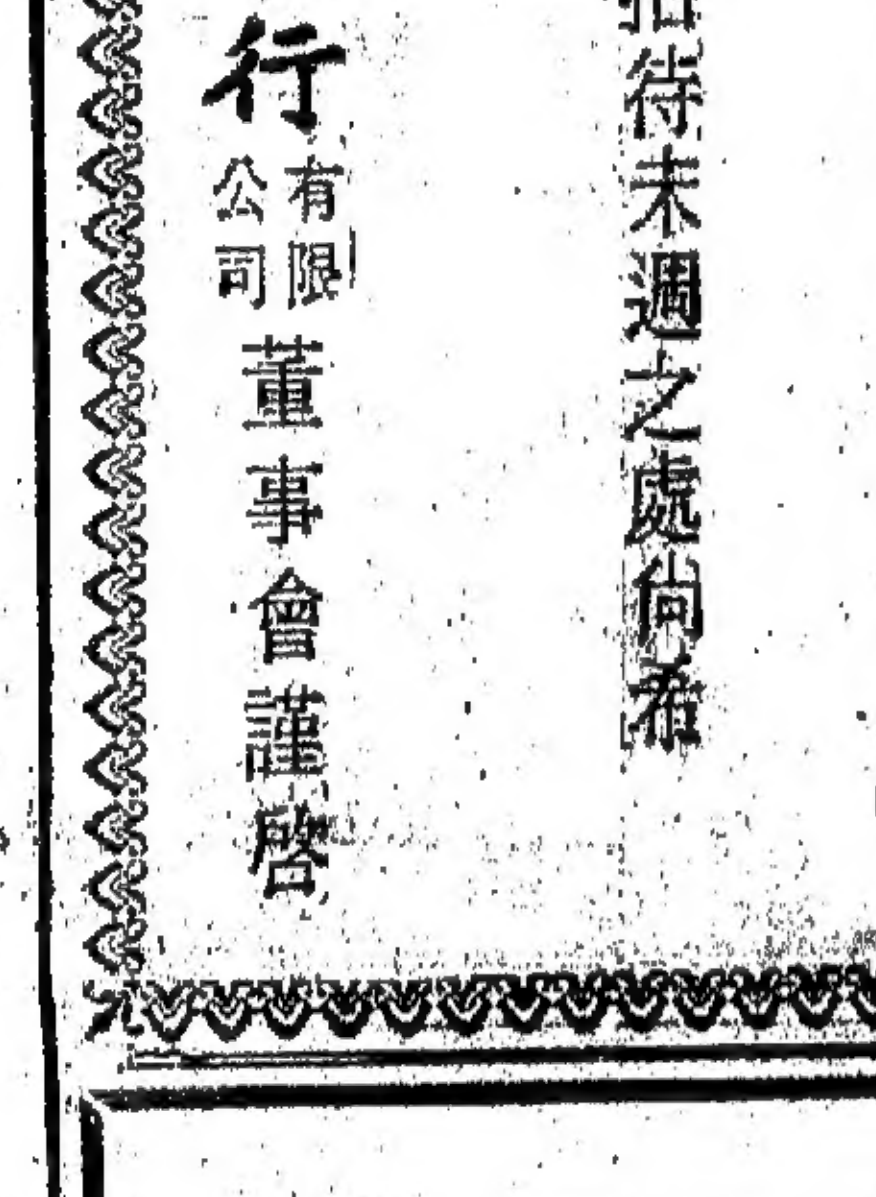 招待未週之處尙希
行有限公司董事會謹啓